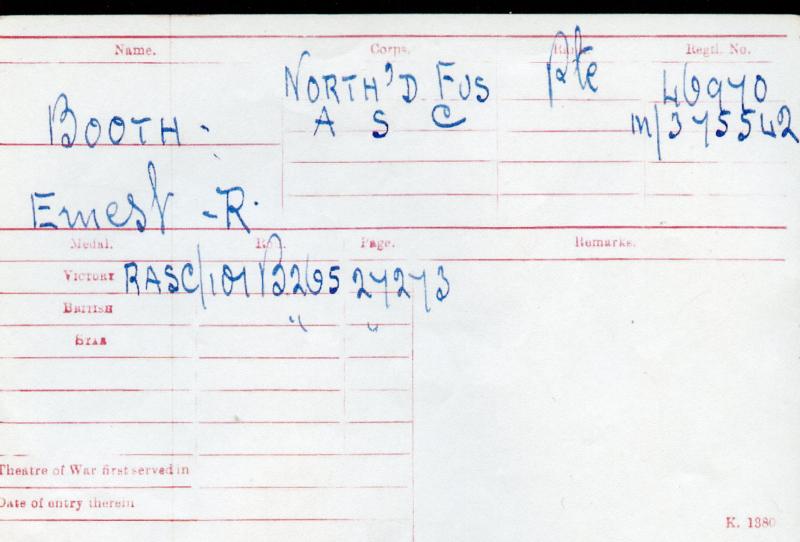 Name. Corps. Rank. Regtl. No.
NORTH'D FUS Pte 46970
BOOTH. A S C M/375542
Ernest - R.
Medal. Roll. Page. Remarks.
VICTORY RASC/101 B265 27273
BRITISH " "
STAR
Theatre of War first served in
Date of entry therein
K. 1380